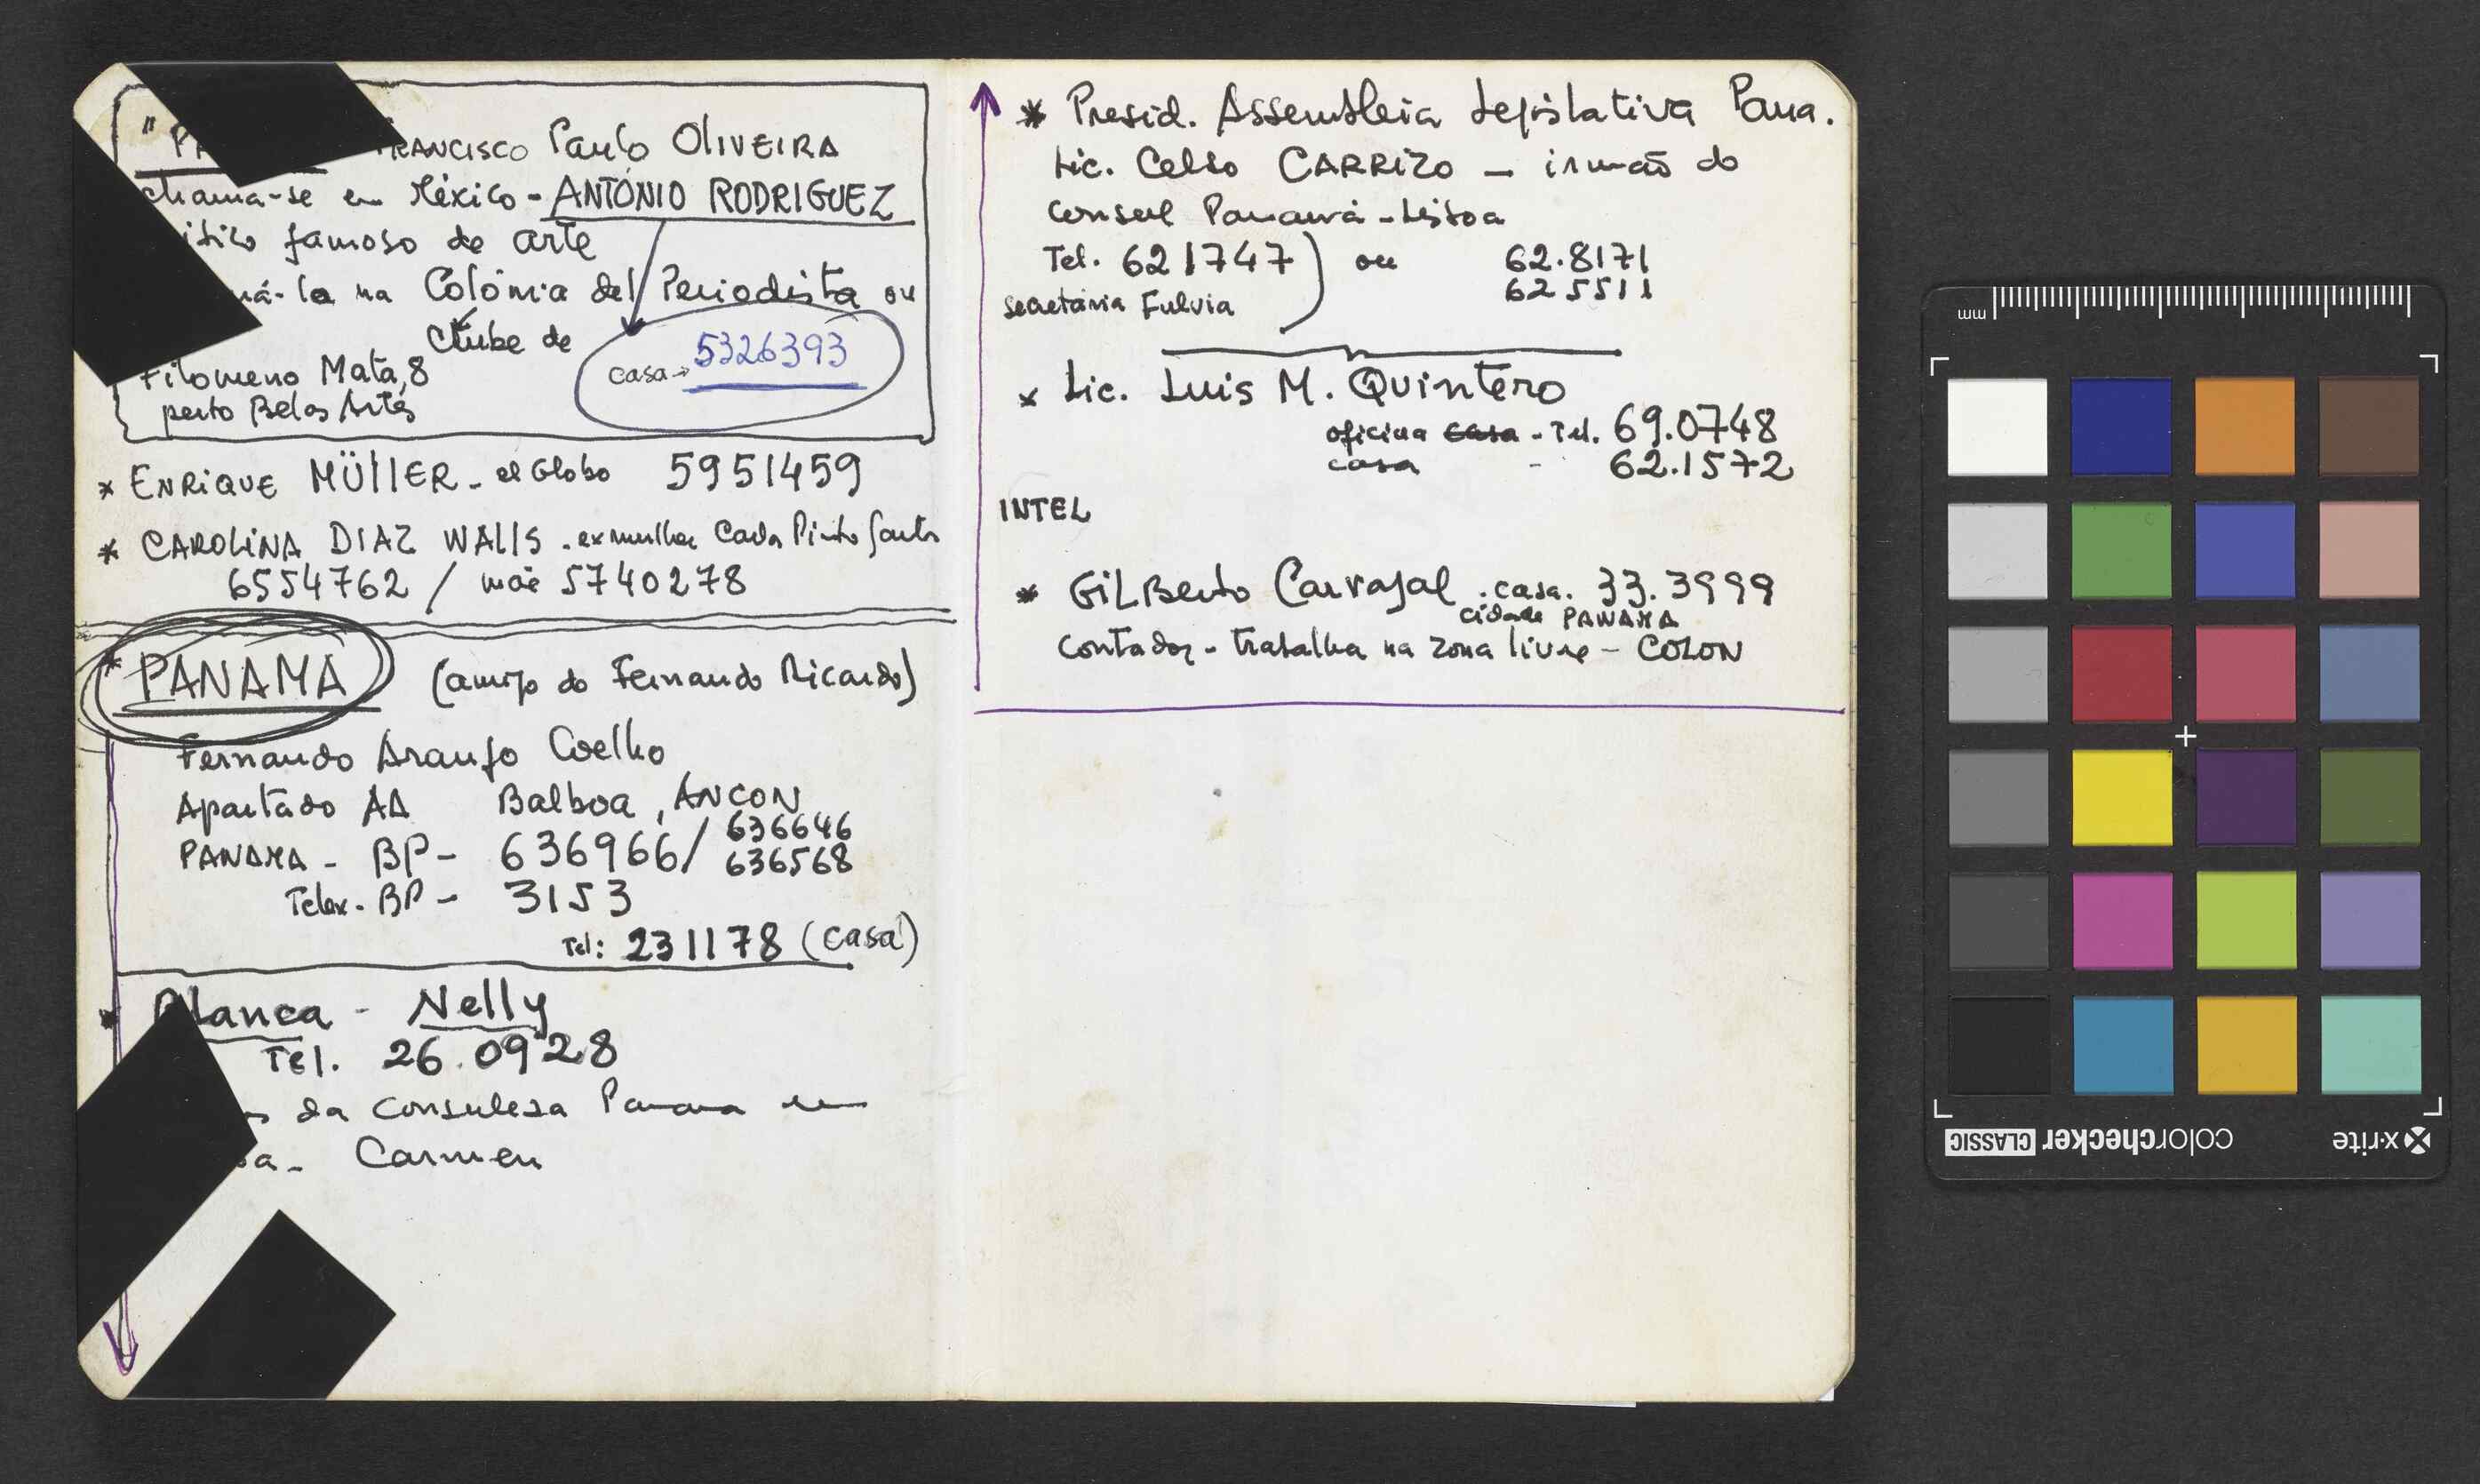 FRANCISCO Paulo OLIVEIRA
chama-se em México - ANTÓNIO RODRIGUEZ
famoso de arte
na Colónia del Periodista ou
Clube de
casa → 5326393
Filomeno Mata, 8
perto Belas Artes
* ENRIQUE MÜLLER - el Globo 5951459
* CAROLINA DIAZ WALLS . ex mulher Carlos Pinto Santos
6554762 / mãe 5740278
* PANAMA (amigo do Fernando Ricardo)
Fernando Araujo Coelho
Apartado AA Balboa, ANCON
PANAMA - BP - 636966 / 636646
636568
Telex. BP - 3153
Tel: 231178 (casa)
* Blanca - Nelly
Tel. 26.0928
da consulesa Panama em
Carmen
* Presid. Assembleia Legislativa Pana.
Lic. Celso CARRIZO - irmão do
consul Panamá - Lisboa
Tel. 621747) ou 62.8171
625511
secretária Fulvia
* Lic. Luis M. Quintero
oficina casa - Tel. 69.0748
casa - 62.1572
INTEL
* GILBerto Carvajal . casa. 33.3999
cidade PANAMA
contador - trabalha na zona livre - COLON
mm
x-rite
colorchecker CLASSIC